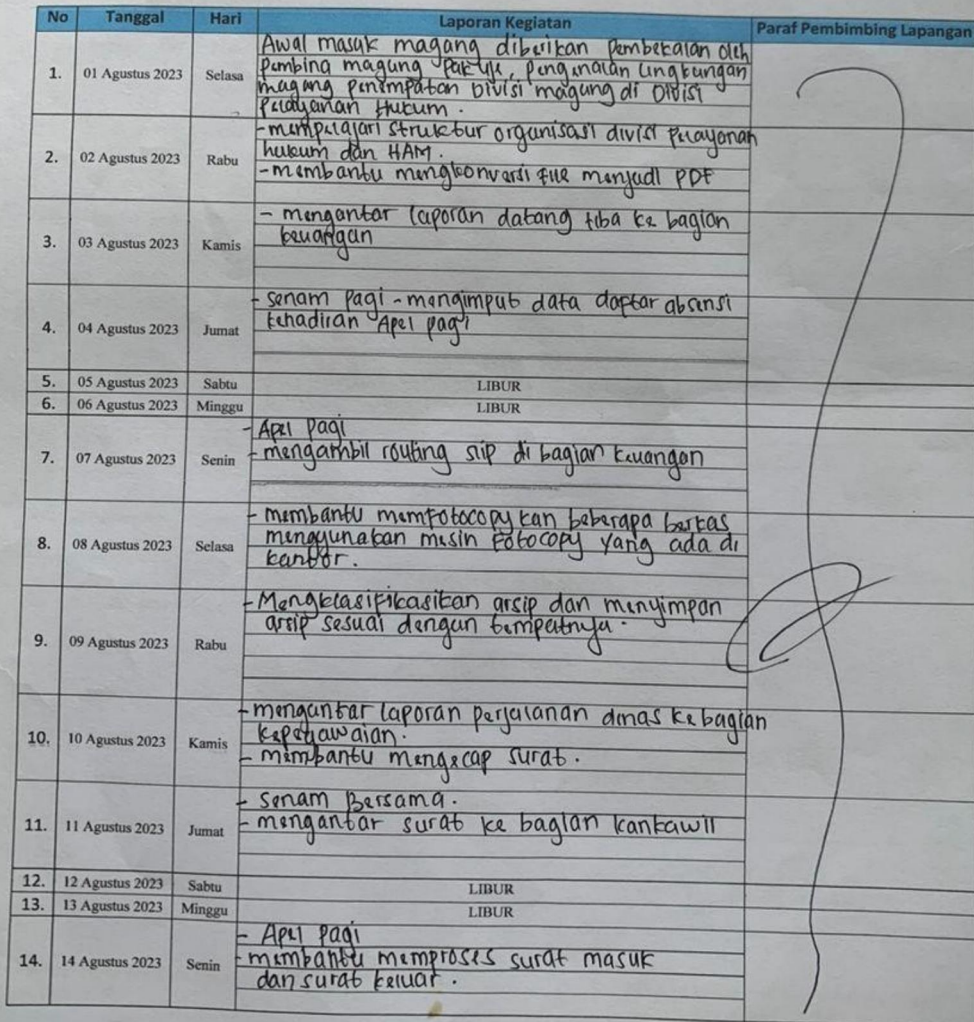 No Tanggal Hari Laporan Kegiatan Paraf Pembimbing Lapangan
1. 01 Agustus 2023 Selasa
Awal masuk magang diberikan Pembekalan oleh
Pembina magang Pak, pengenalan lingkungan
magang penempatan Divisi magang di Divisi
Pelayanan Hukum.
2. 02 Agustus 2023 Rabu
- mempelajari struktur organisasi divisi pelayanan
hukum dan HAM.
- membantu mengkonversi file menjadi PDF
3. 03 Agustus 2023 Kamis
- mengantar laporan datang tiba ke bagian
keuangan
4. 04 Agustus 2023 Jumat
- senam pagi - mengimput data daptar absensi
kehadiran Apel pagi
5. 05 Agustus 2023 Sabtu LIBUR
6. 06 Agustus 2023 Minggu LIBUR
7. 07 Agustus 2023 Senin
- Apel pagi
- mengambil routing slip di bagian keuangan
8. 08 Agustus 2023 Selasa
- membantu memfotocopykan beberapa berkas
menggunakan mesin fotocopy yang ada di
kantor.
9. 09 Agustus 2023 Rabu
- Mengklasifikasikan arsip dan menyimpan
arsip sesuai dengan tempatnya.
10. 10 Agustus 2023 Kamis
- mengantar laporan perjalanan dinas ke bagian
kepegawaian.
- membantu mengecap surat.
11. 11 Agustus 2023 Jumat
- Senam Bersama.
- mengantar surat ke bagian kankawil
12. 12 Agustus 2023 Sabtu LIBUR
13. 13 Agustus 2023 Minggu LIBUR
14. 14 Agustus 2023 Senin
- Apel pagi
- membantu memproses surat masuk
dan surat keluar.